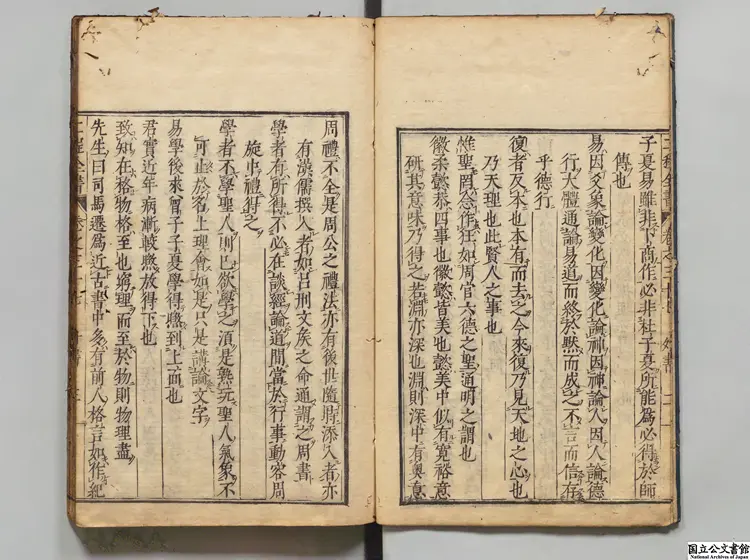 子夏易雖非卜商作必非杜子夏所能為必得於師
傳也
易因爻象論變化因變化論神因神論人因人論德
行大體通論易道而終於默而成之不言而信存
乎德行
復者反本也本有而去之今來復乃見天地之心也
乃天理也此賢人之事也
惟聖罔念作狂如周官六德之聖通明之謂也
徽柔懿恭四事也徽懿皆美也懿美中似有寬裕意
研其意味乃得之若淵亦深也淵則深中有奧意
周禮不全是周公之禮法亦有後世隨時添入者亦
有漢儒撰入者如呂刑文矦之命通謂之周書
學者有所得不必在談經論道間當於行事動容周
旋中禮得之
學者不學聖人則已欲學之須是熟玩聖人氣象不
可止於名上理會如是只是講論文字
易學後來曾子子夏學得煞到上面也
君實近年病漸較煞放得下也
致知在格物格至也窮理而至於物則物理盡
先生曰司馬遷為近古書中多有前人格言如作紀
二程全書
国立公文書館
National Archives of Japan